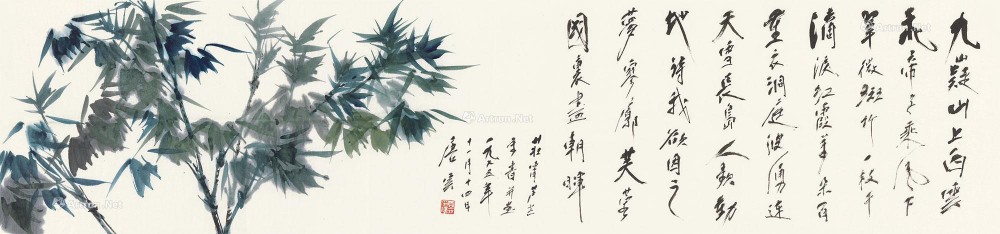 九嶷山上白雲
飛帝子乘風下
翠微斑竹一枝千
滴淚紅霞萬朵百
重衣洞庭波湧連
天雪長島人歌動
地詩我欲因之
夢寥廓芙蓉
國裏盡朝暉
十一月十四日
唐雲
Artron.Net
Artron.Net
Artron.Net